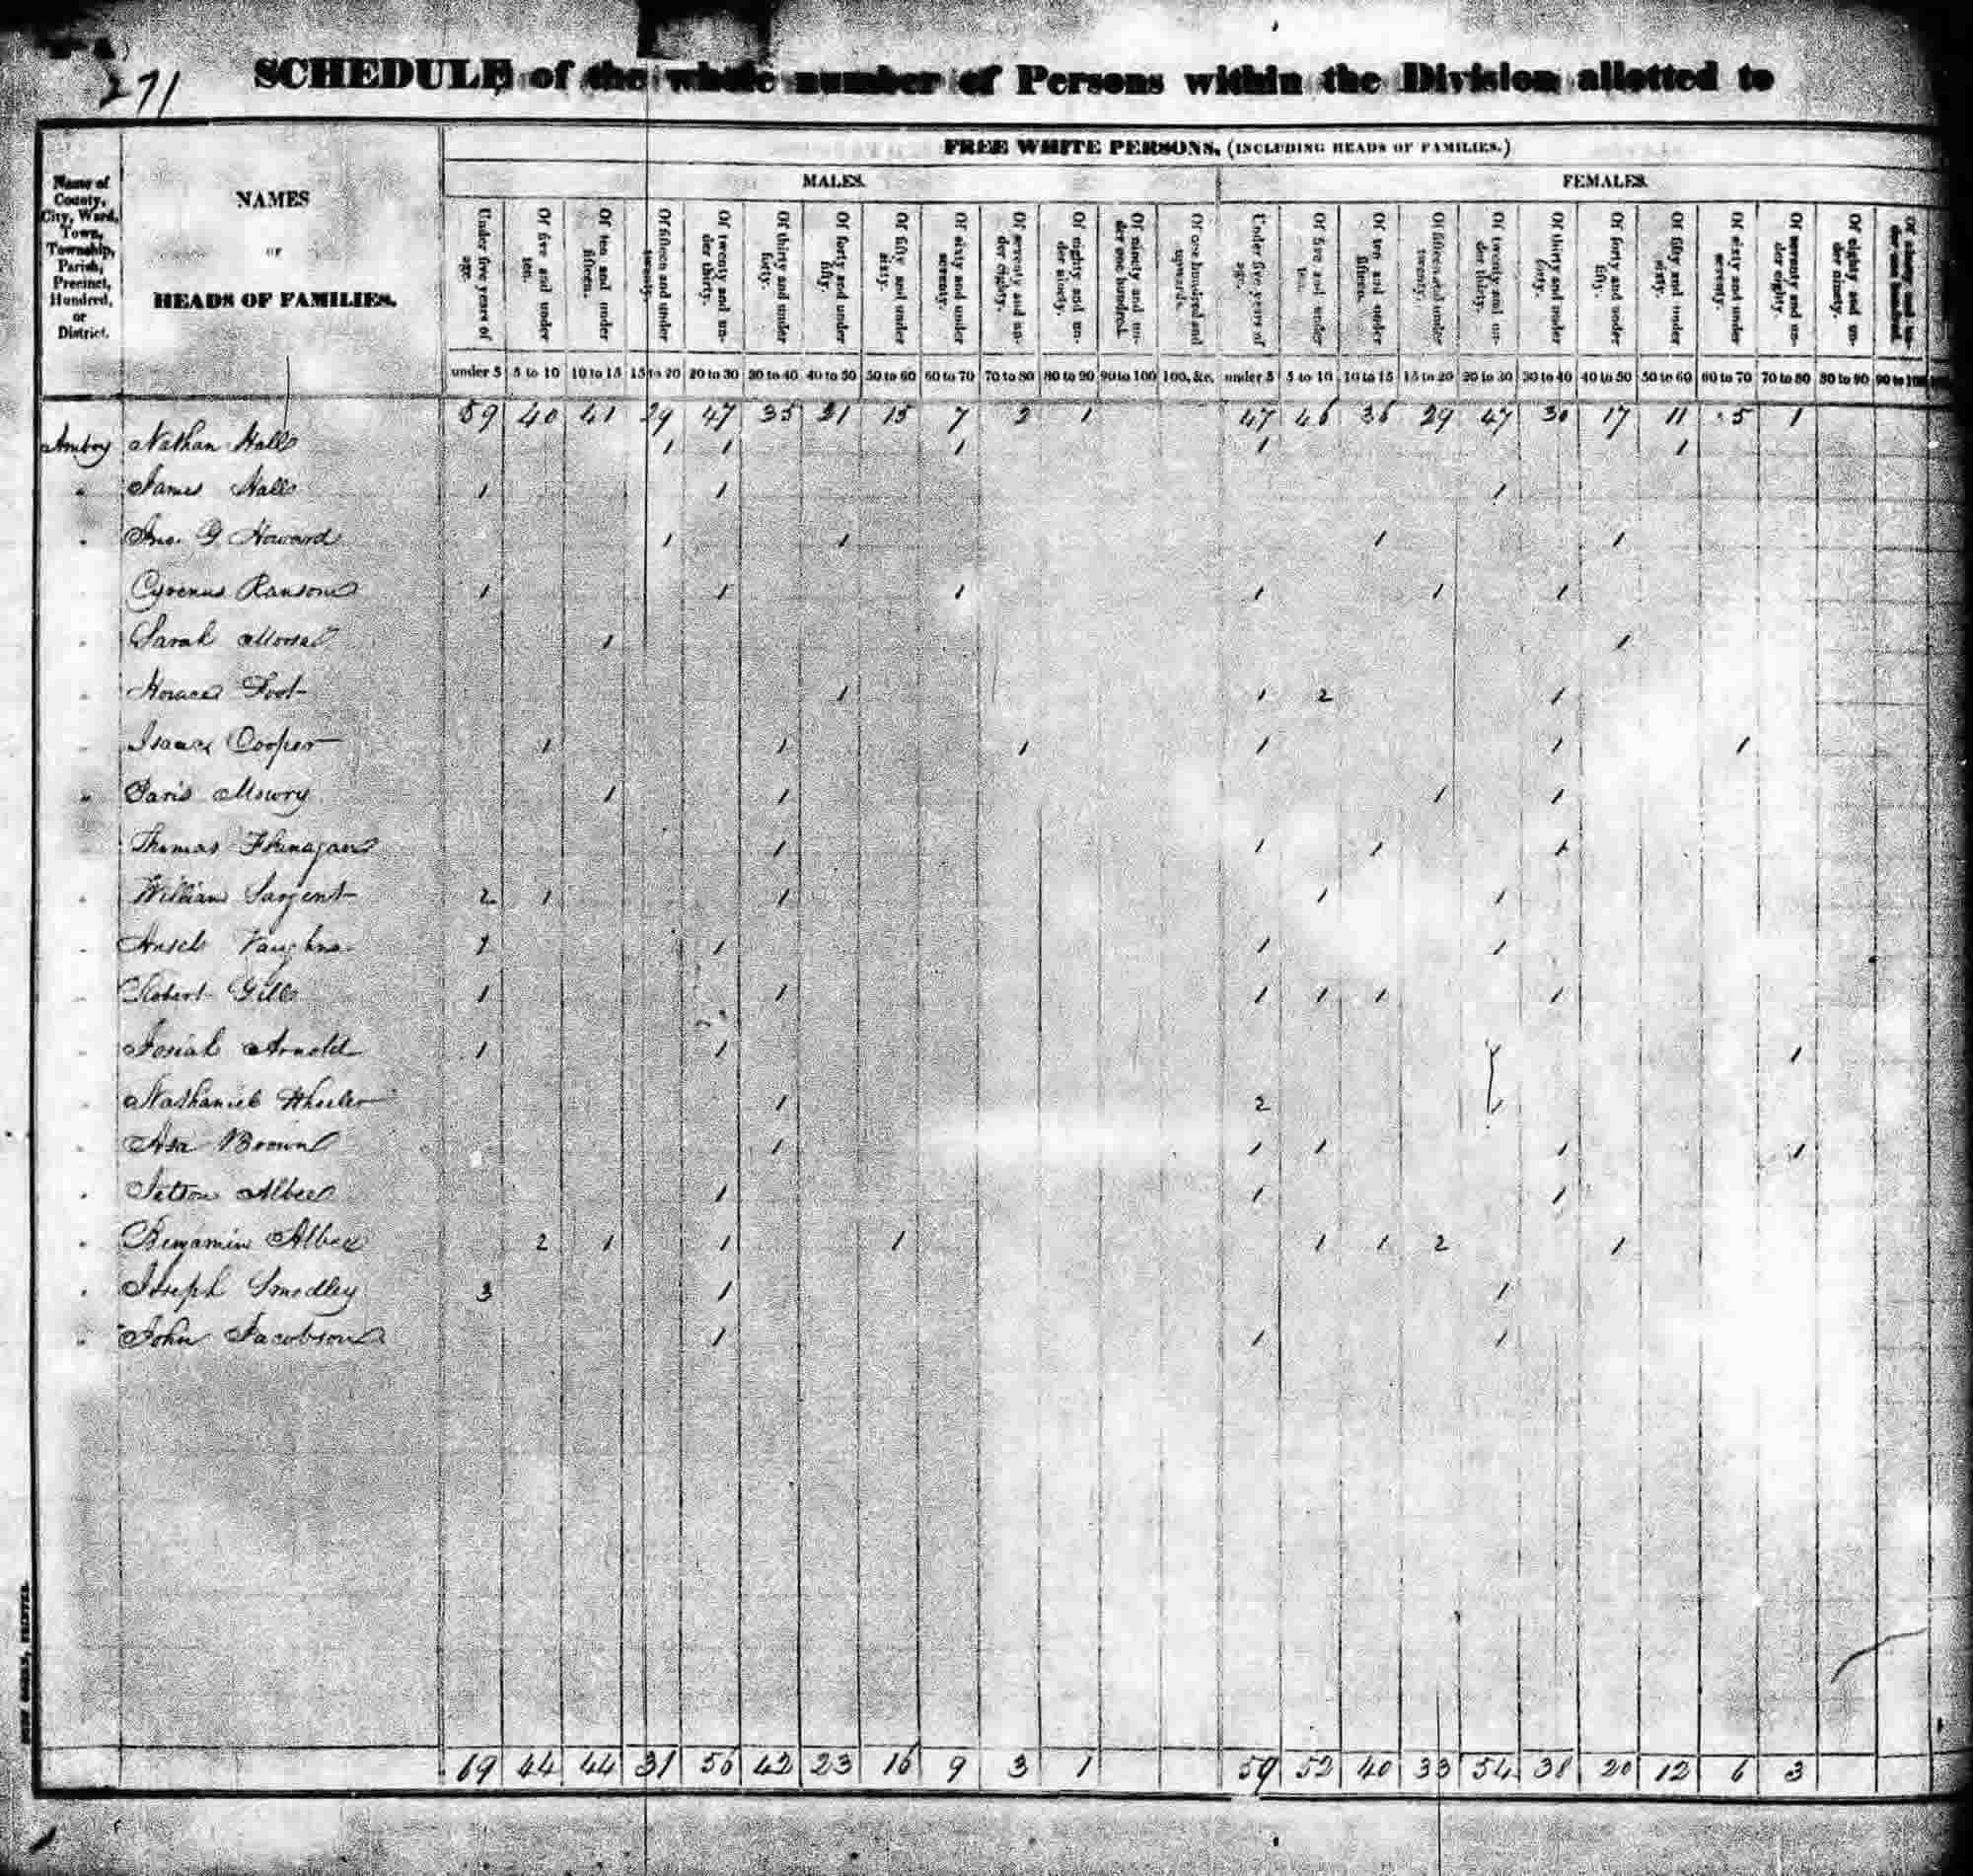 271
SCHEDULE of the whole number of Persons within the Division allotted to
FREE WHITE PERSONS, (INCLUDING HEADS OF FAMILIES.)
MALES. FEMALES.
Name of County, City, Ward, Town, Township, Parish, Precinct, Hundred, or District.
NAMES
OF
HEADS OF FAMILIES.
Under five years of age. Of five and under ten. Of ten and under fifteen. Of fifteen and under twenty. Of twenty and under thirty. Of thirty and under forty. Of forty and under fifty. Of fifty and under sixty. Of sixty and under seventy. Of seventy and under eighty. Of eighty and under ninety. Of ninety and under one hundred. Of one hundred and upwards. Under five years of age. Of five and under ten. Of ten and under fifteen. Of fifteen and under twenty. Of twenty and under thirty. Of thirty and under forty. Of forty and under fifty. Of fifty and under sixty. Of sixty and under seventy. Of seventy and under eighty. Of eighty and under ninety. Of ninety and under one hundred.
under 5 5 to 10 10 to 15 15 to 20 20 to 30 30 to 40 40 to 50 50 to 60 60 to 70 70 to 80 80 to 90 90 to 100 100, &c. under 5 5 to 10 10 to 15 15 to 20 20 to 30 30 to 40 40 to 50 50 to 60 60 to 70 70 to 80 80 to 90 90 to 100
59 40 41 29 47 35 21 15 7 2 1 47 46 36 29 47 30 17 11 5 1
Amboy Nathan Hall 1 1 1 1 1
" James Hall 1 1 1
" Jno. G. Howard 1 1 1 1
Cyrenus Ransom 1 1 1 1 1 1
" Sarah Morse 1 1
" Horace Foot 1 1 2 1
" Isaac Cooper 1 1 1 1 1 1
" Paris Mowry 1 1 1 1
Thomas Flanagan 1 1 1 1
" William Sargent 2 1 1 1 1
" Ansel Vaughn 1 1 1 1
" Robert Gill 1 1 1 1 1 1
" Josiah Arnold 1 1 1
" Nathaniel Wheeler 1 2 1
" Asa Brown 1 1 1 1 1
" Albee 1 1 1
" Benjamin Albee 2 1 1 1 1 1 2 1
" Joseph Smedley 3 1 1
" John Jacobson 1 1 1
69 44 44 31 56 42 23 16 9 3 1 59 52 40 33 54 38 20 12 6 3